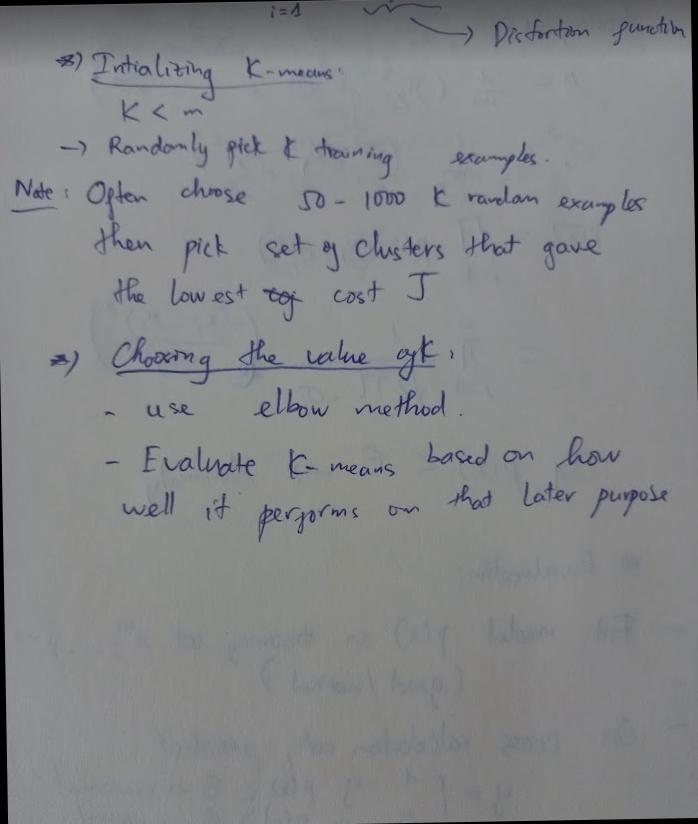 i=1
→ Distortion function
*) Intializing K-means:
K < m
→ Randomly pick K training examples.
Note: Often choose 50 - 1000 K random examples
then pick set of clusters that gave
the lowest cost J
*) Choosing the value of K:
- use elbow method.
- Evaluate K-means based on how
well it performs on that later purpose